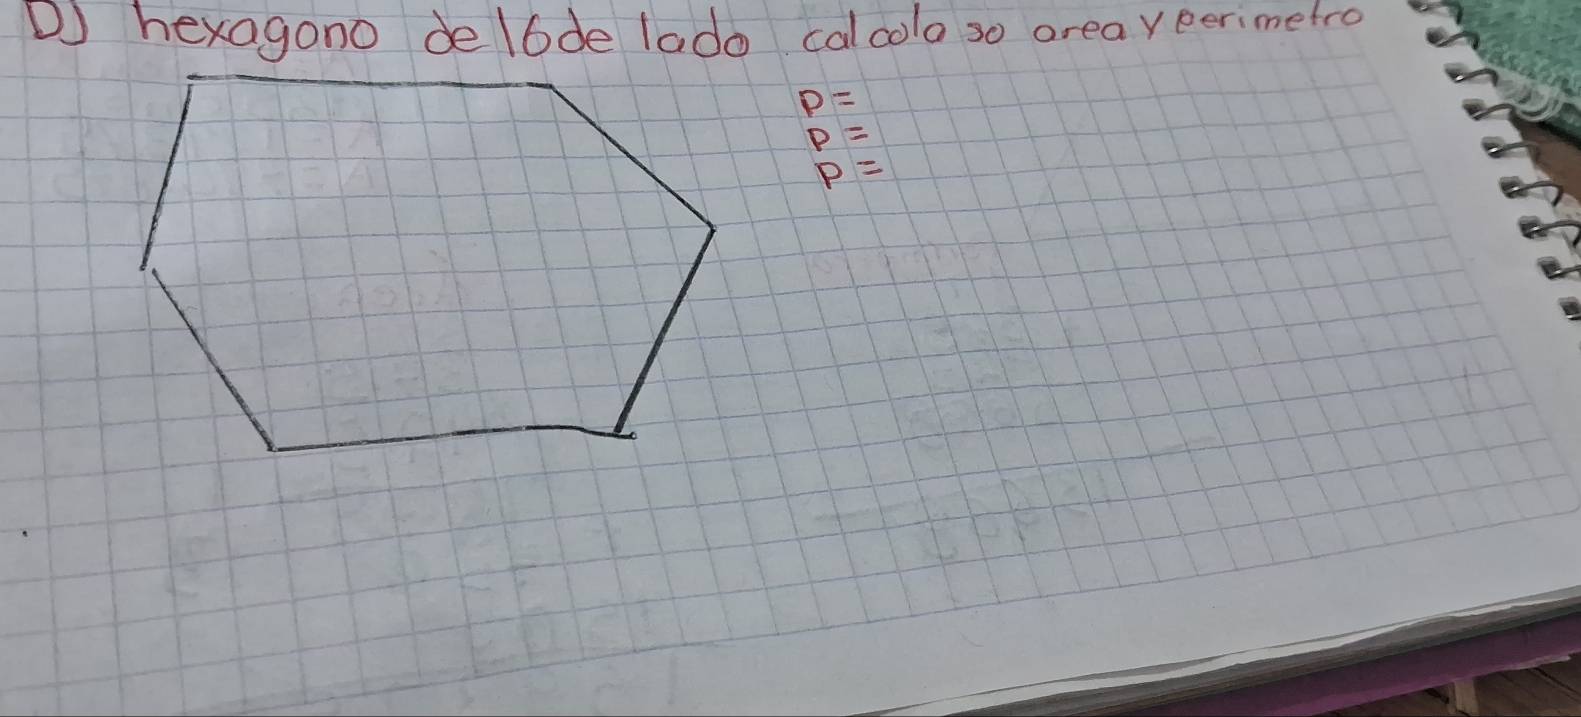 D) hexagono de 16 de lado calcola so area y perimetro
P=
P=
P=